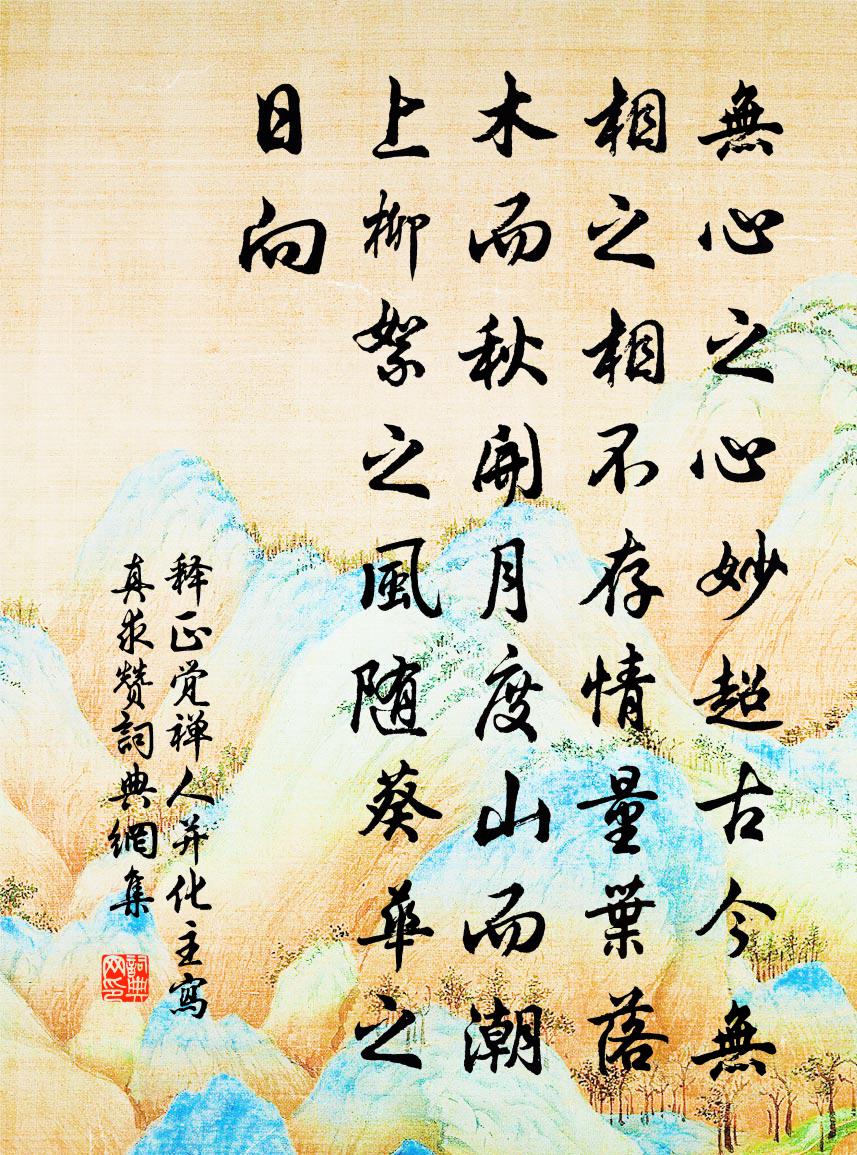 無心之心妙超古今無
相之相不存情量葉落
木而秋開月度山而潮
上柳絮之風随葵華之
日向
释正觉禅人并化主寫
真求赞詞典網集
詞典网印